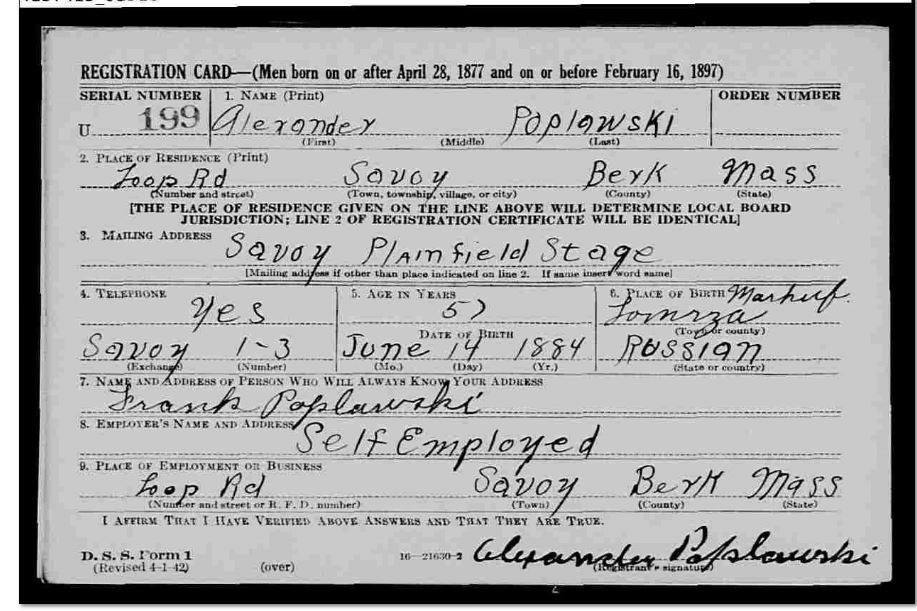 REGISTRATION CARD—(Men born on or after April 28, 1877 and on or before February 16, 1897)
SERIAL NUMBER 1. NAME (Print) ORDER NUMBER
U 199 Alexander Poplawski
(First) (Middle) (Last)
2. PLACE OF RESIDENCE (Print)
Loop Rd Savoy Berk Mass
(Number and street) (Town, township, village, or city) (County) (State)
[THE PLACE OF RESIDENCE GIVEN ON THE LINE ABOVE WILL DETERMINE LOCAL BOARD
JURISDICTION; LINE 2 OF REGISTRATION CERTIFICATE WILL BE IDENTICAL]
3. MAILING ADDRESS
Savoy Plainfield Stage
[Mailing address if other than place indicated on line 2. If same insert word same]
4. TELEPHONE 5. AGE IN YEARS 6. PLACE OF BIRTH
Yes 57 Lomza
DATE OF BIRTH (Town or county)
Savoy 1-3 June 14 1884 Russian
(Exchange) (Number) (Mo.) (Day) (Yr.) (State or country)
7. NAME AND ADDRESS OF PERSON WHO WILL ALWAYS KNOW YOUR ADDRESS
Frank Poplawski
8. EMPLOYER'S NAME AND ADDRESS
Self Employed
9. PLACE OF EMPLOYMENT OR BUSINESS
Loop Rd Savoy Berk Mass
(Number and street or R. F. D. number) (Town) (County) (State)
I AFFIRM THAT I HAVE VERIFIED ABOVE ANSWERS AND THAT THEY ARE TRUE.
D. S. S. Form 1 16—21630-2 Alexander Poplawski
(Revised 4-1-42) (over) (Registrant's signature)